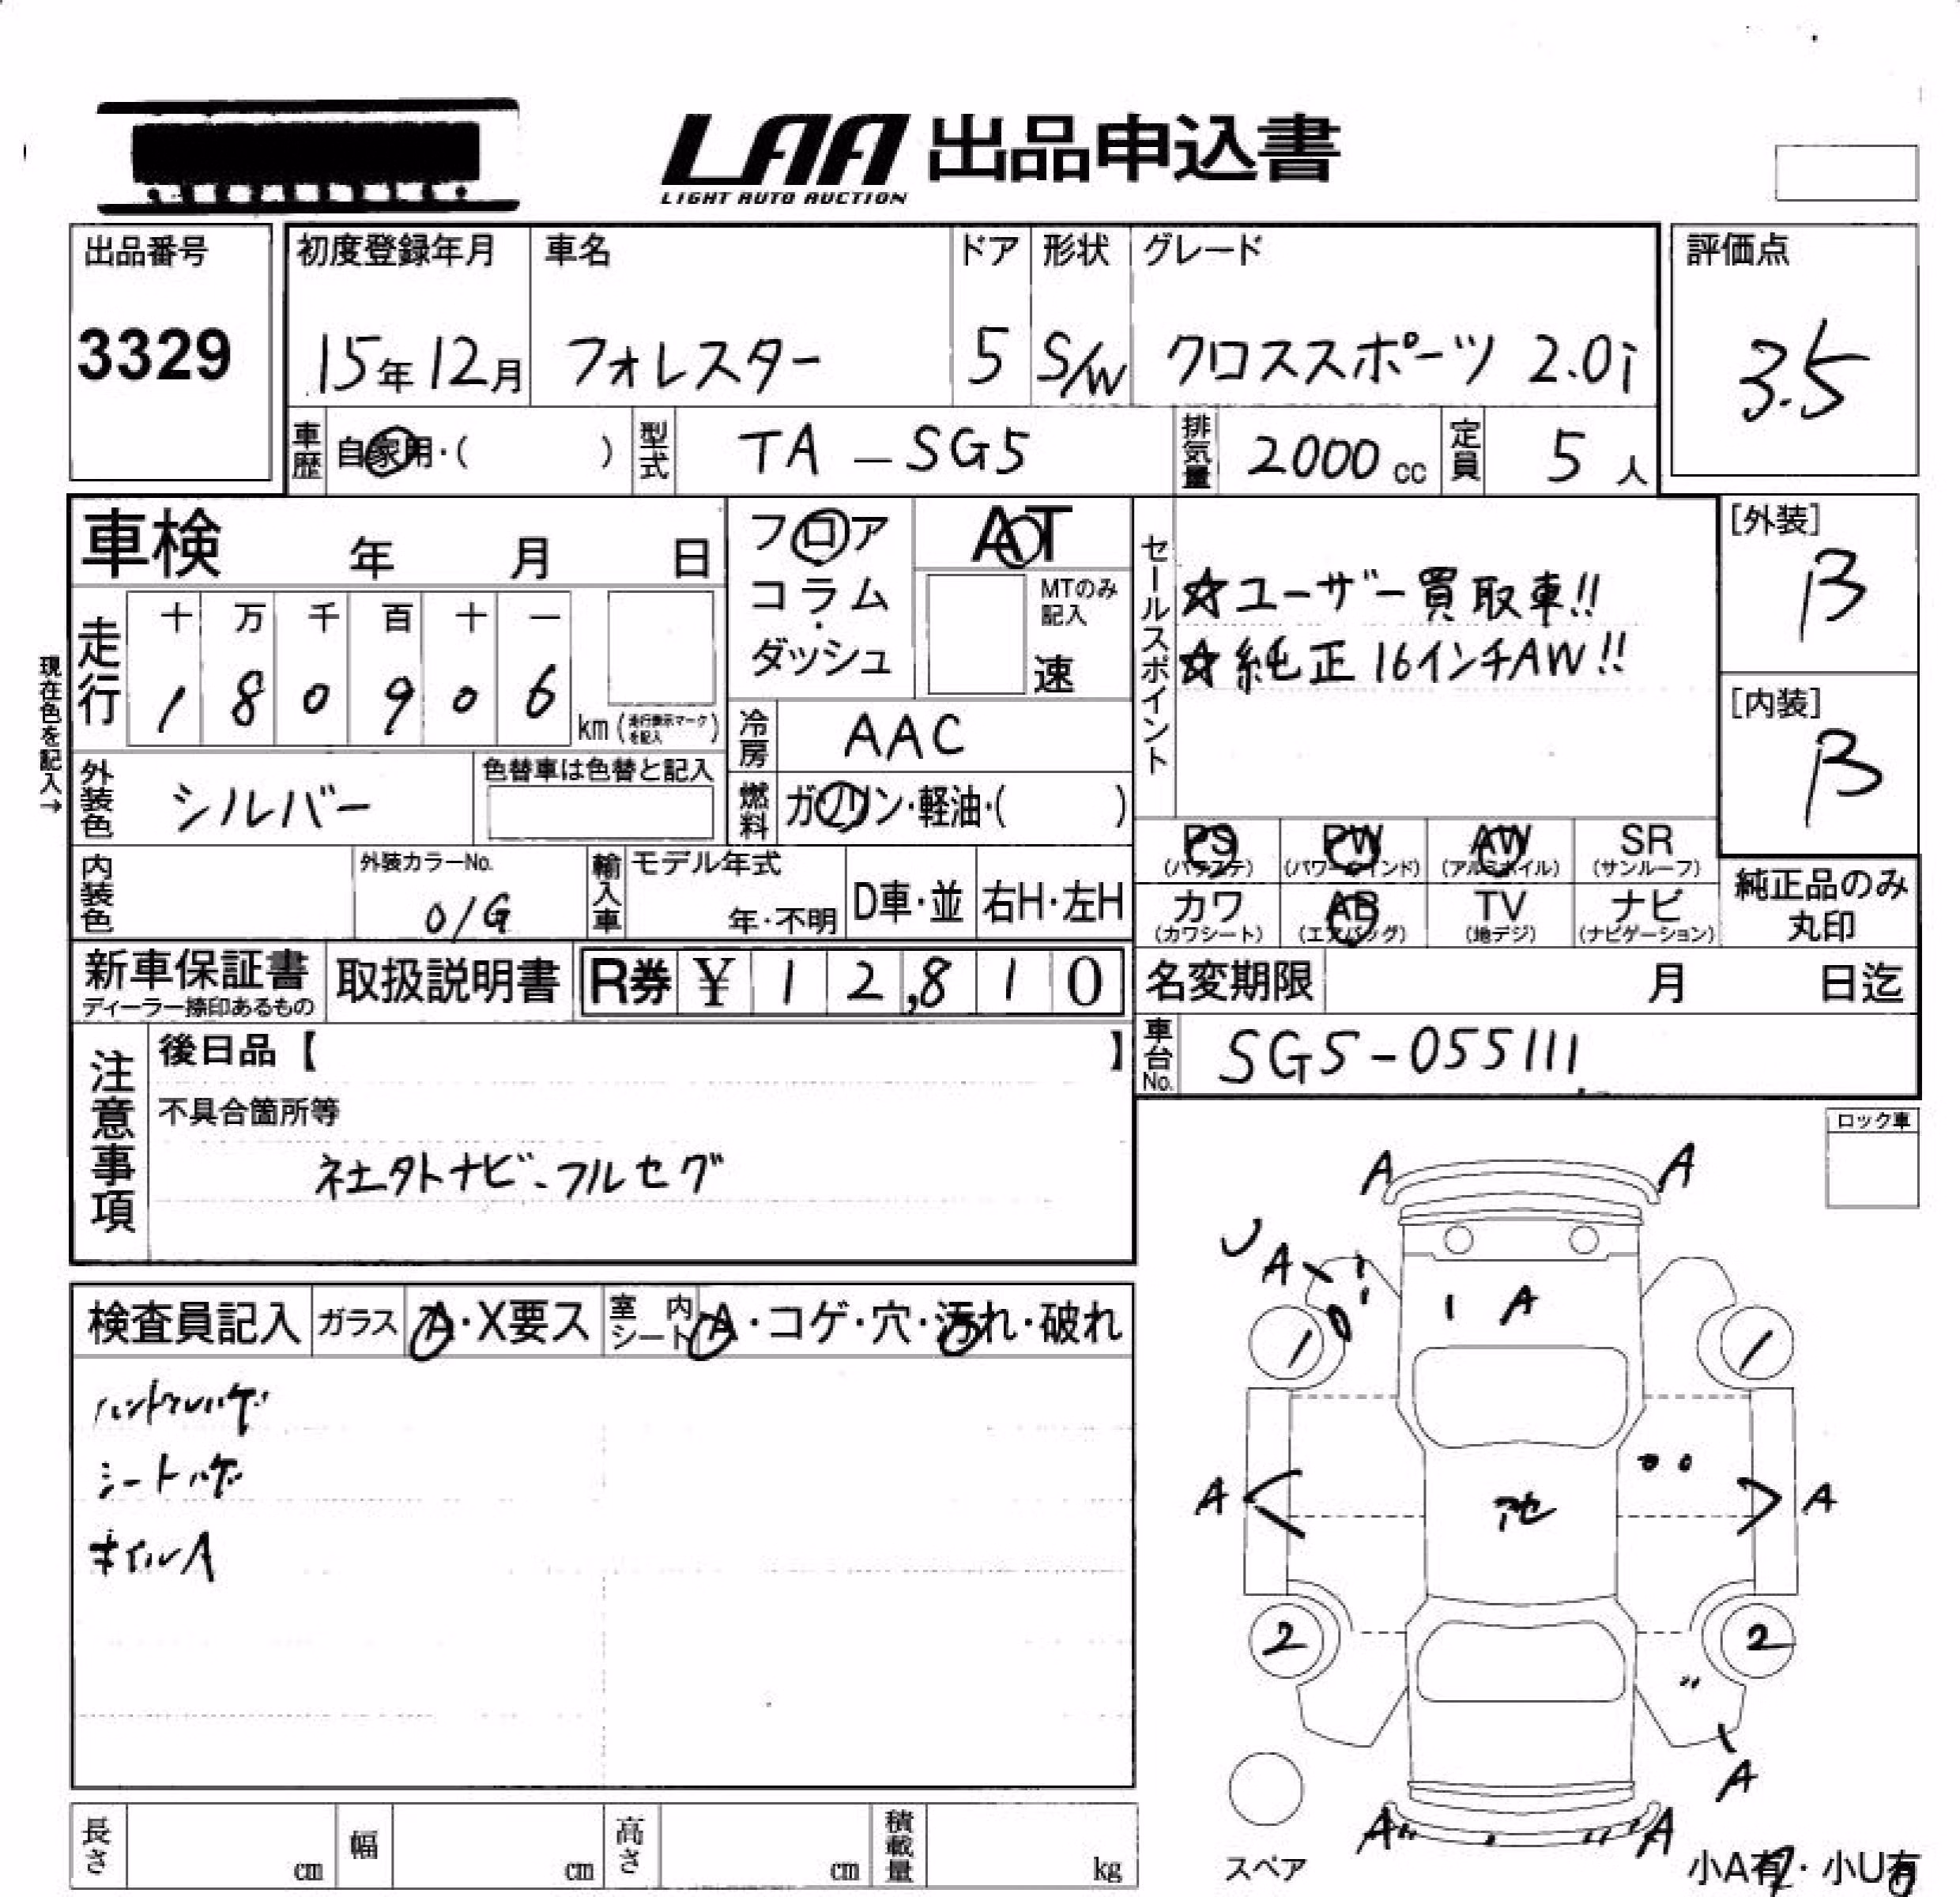 LAA 出品申込書
LIGHT AUTO AUCTION
出品番号
3329
初度登録年月
15年12月
車名
フォレスター
ドア
5
形状
S/W
グレード
クロススポーツ 2.0i
評価点
3.5
車歴
自家用・( )
型式
TA-SG5
排気量
2000 cc
定員
5 人
車検 年 月 日
フロア
コラム・
ダッシュ
AT
MTのみ
記入
速
セールスポイント
☆ユーザー買取車!!
☆純正16インチAW!!
[外装]
B
[内装]
B
現在色を記入→
走行
十 万 千 百 十 一
1 8 0 9 0 6
km (走行表示マークを記入)
冷房
AAC
燃料
ガソリン・軽油・( )
外装色
シルバー
色替車は色替と記入
PS
(パワステ)
PW
(パワーウインド)
AW
(アルミホイル)
SR
(サンルーフ)
カワ
(カワシート)
AB
(エアバッグ)
TV
(地デジ)
ナビ
(ナビゲーション)
純正品のみ
丸印
内装色
外装カラーNo.
0/G
輸入車
モデル年式
年・不明
D車・並
右H・左H
新車保証書
ディーラー捺印あるもの
取扱説明書
R券 ¥ 12,810
名変期限 月 日迄
車台No.
SG5-055111
注意事項
後日品【 】
不具合箇所等
社外ナビ・フルセグ
ロック車
検査員記入
ガラス
A・X要ス
室内シート
A・コゲ・穴・汚れ・破れ
ハンドルハゲ
シートハゲ
ホイルA
A A
A
A
1 1
A A
2 2
A
A A
スペア
小A有・小U有
長さ cm
幅 cm
高さ cm
積載量 kg